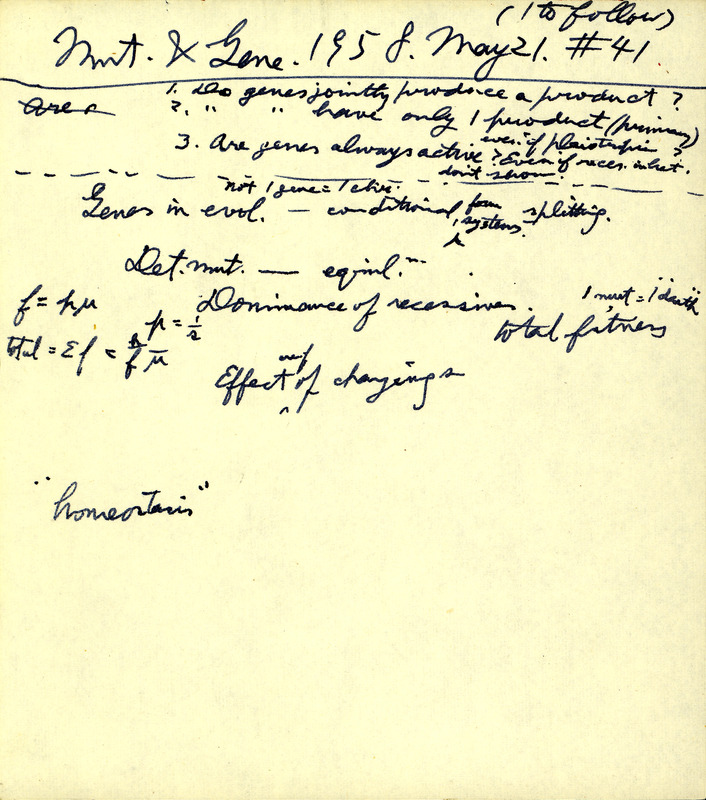 (1 to follow)
Mut. & Gene. 1958. May 21. #41
Area
1. Do genes jointly produce a product?
2. " " have only 1 product (primary)
even if pleiotropic?
3. Are genes always active? Even if reces. inhet.
don't show?
not 1 gene = 1 char.
Genes in evol. — conditional, form systems. splitting.
Det. mut. — equil.
f = pμ Dominance of recessives. 1 mut = 1 "death"
p = 1/s total fitness
total = Σf =
Effect of changing s
"homeostasis"